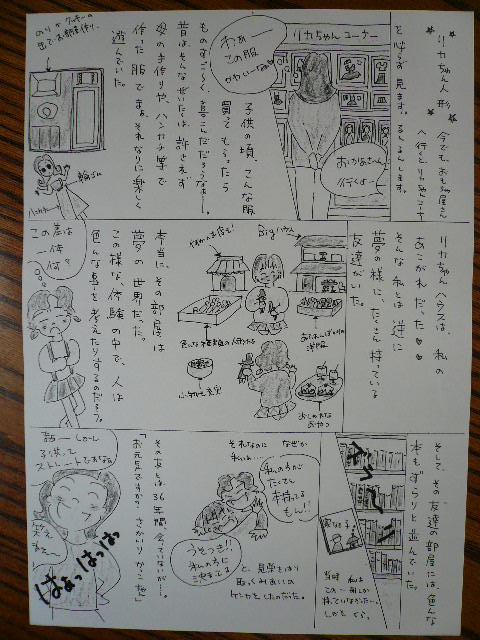 リカちゃん人形
今でも、おもちゃ屋さん
へ行くと、リカちゃんコーナー
を必ず見ます。るんるんします。
リカちゃんコーナー
わぁー
この服
かわいいなぁ
おかあさん、
行くよー
子供の頃、こんな服
買ってもらったら
ものすごーく、喜こんだだろうなぁー。
昔はそんなぜいたくは、許されず
姿の手作りや、ハンカチ等で
作った服で、まぁ、それなりに楽しく
遊んでいた。
のりか クッキーの
缶でお部屋作り。
輪ゴム
ハンカチ
リカちゃんハウスは、私の
あこがれだった♡♡
そんな私とは逆に
夢の様に、たくさん持っている
友達がいた。
Bigハウス
なぜかお店も!
あふれんばかりの
洋服
色んな種類の人形たち
小物も充実
おしゃれな
おやつ
本当に、その部屋は
夢の世界だった。
この様な、体験の中で、人は
色んな事を考えたりするのだろう。
この差は
一体
何?
そして、その友達の部屋には色んな
本もずらりと並んでいた。
ずらーり
当時、私は
この一冊しか
持っていなかった…。
しかと ぐら。
それなのに なぜか
私は…
私の方が
たくさん
本持ってる
もん!!
うそつき!!
私の方に
決まってる
と、見栄をはり
取っくみあいの
ケンカとしたのだった。
その友とは36年間会ってないが…。
「お元気ですか? さかりりかこ
笑え
ねぇ〜
はぁっはっは